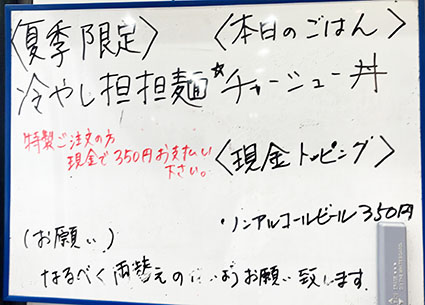 〈夏季限定〉
冷やし担担麺☆
特製ご注文の方
現金で350円お支払い
下さい。
〈本日のごはん〉
チャーシュー丼
〈現金トッピング〉
・ノンアルコールビール350円
(お願い)
なるべく両替えの ようお願い致します。